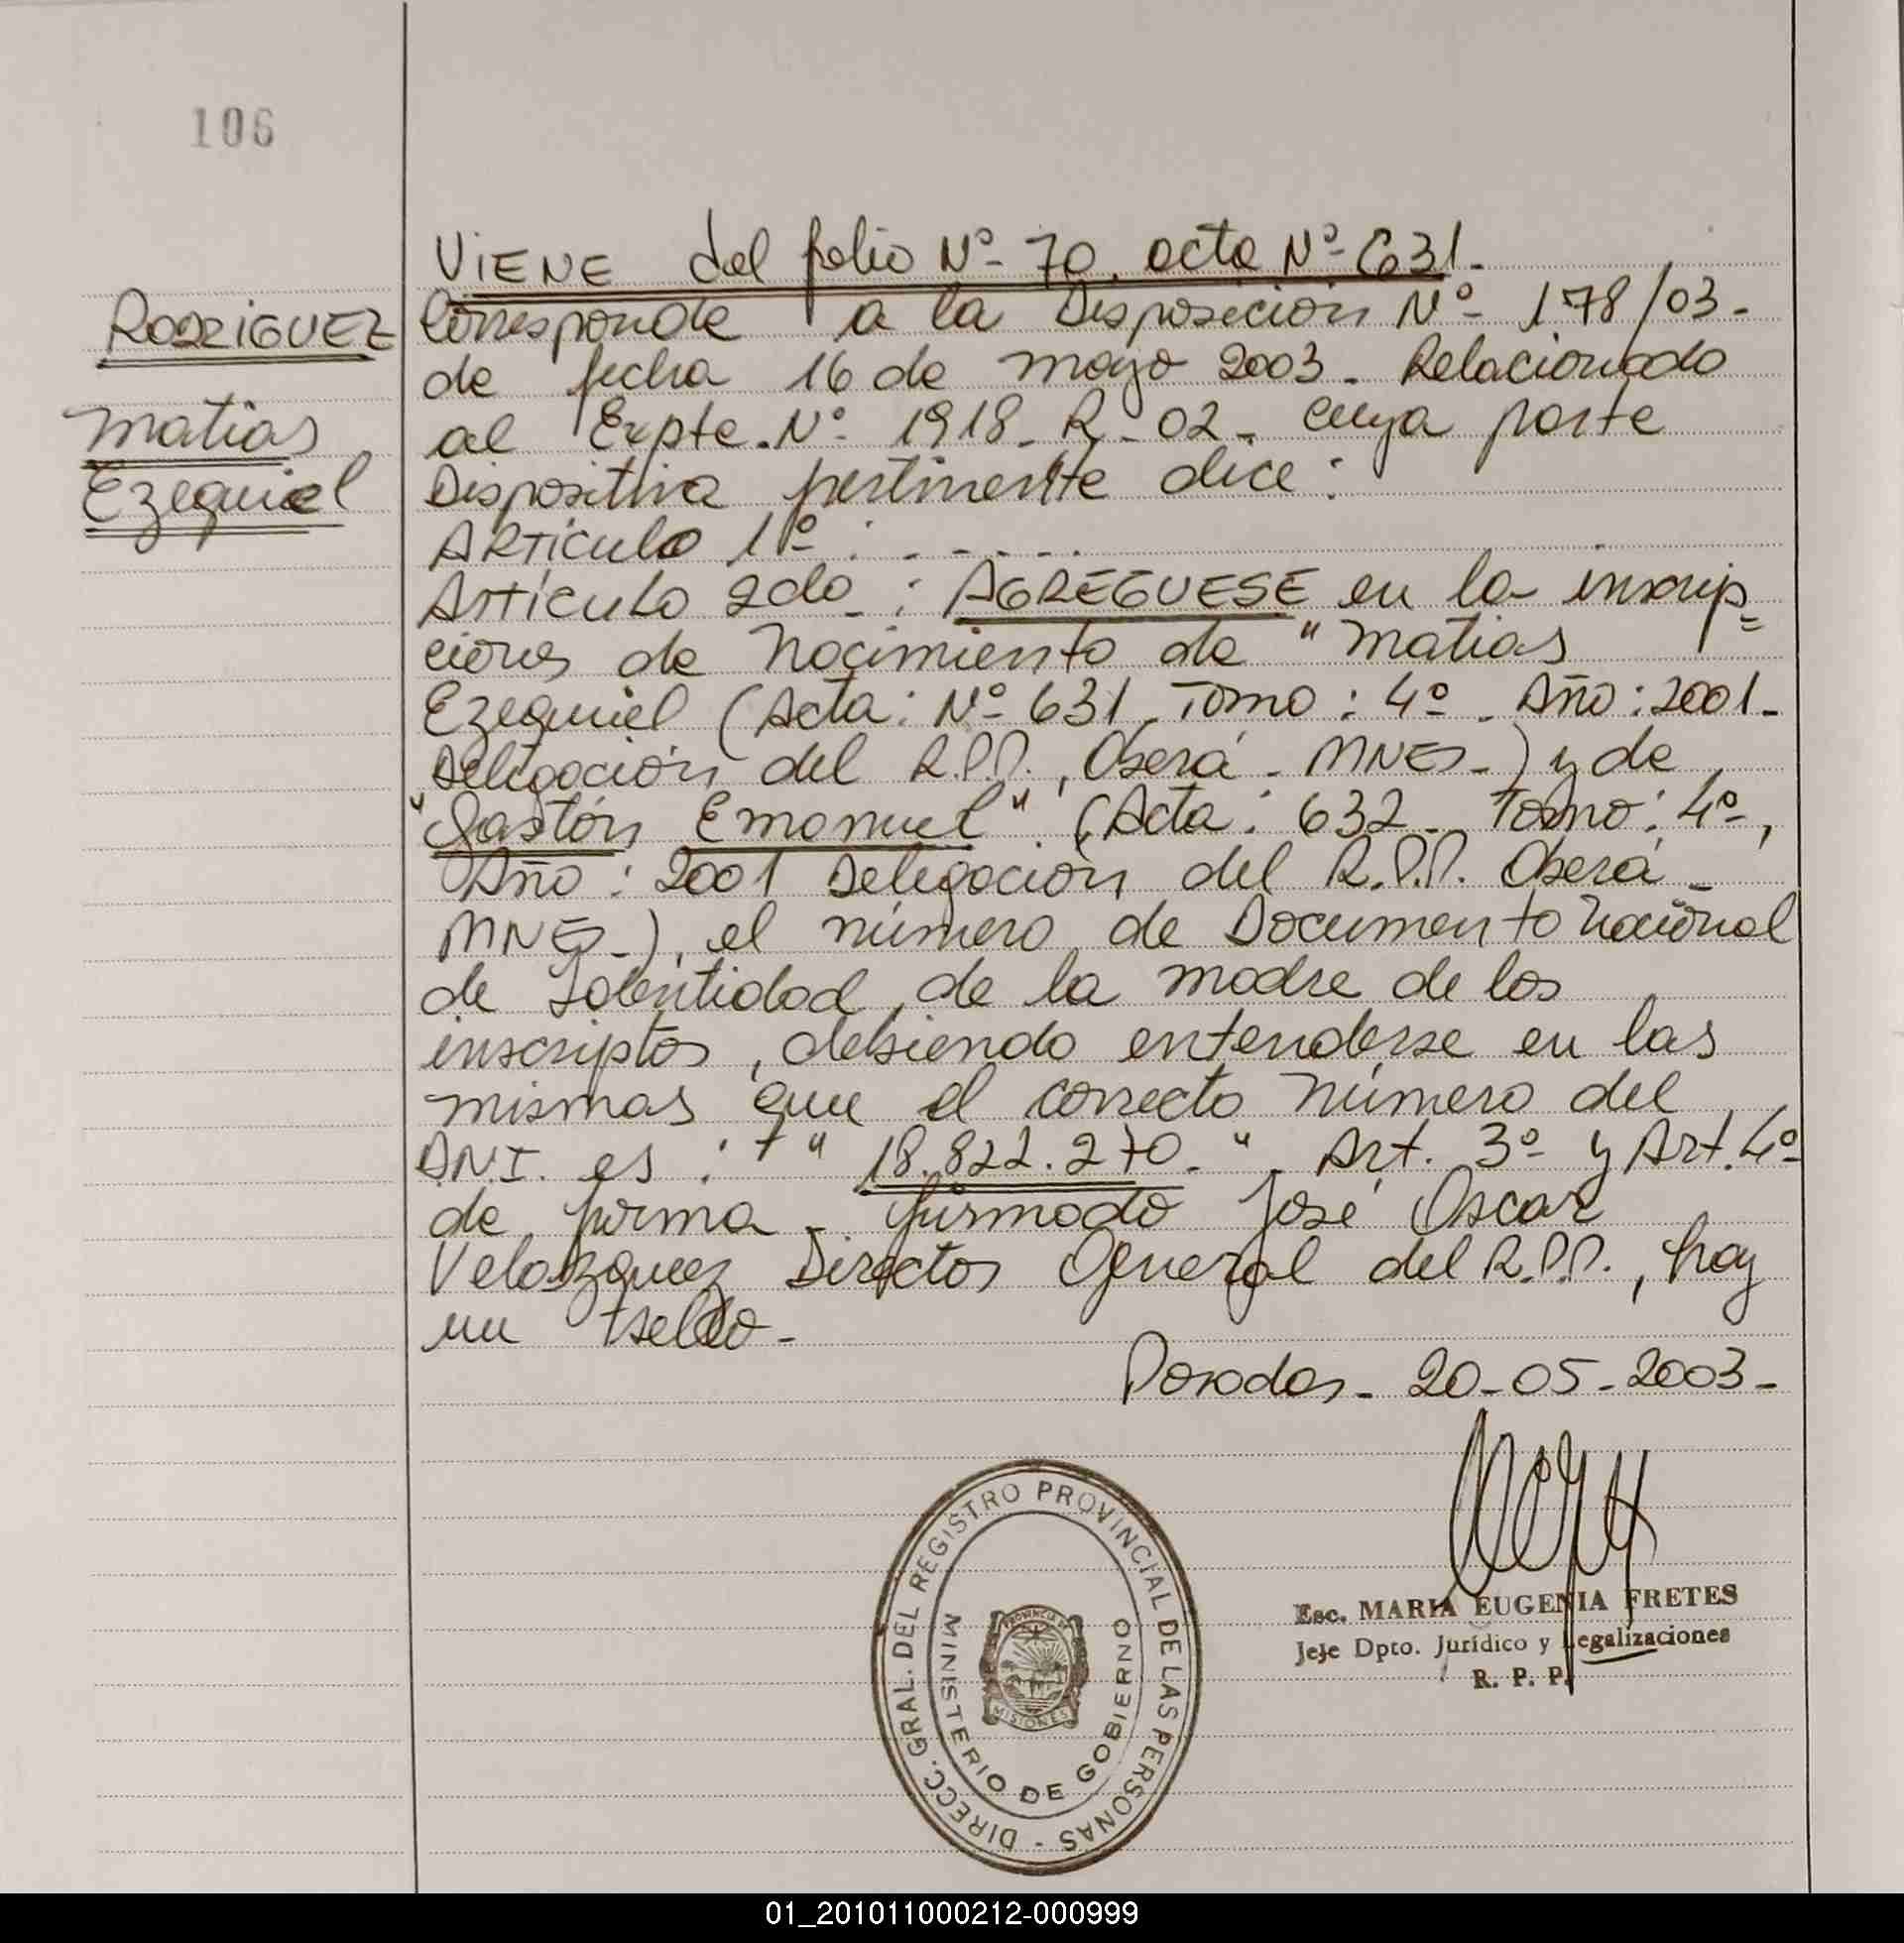 106
VIENE del folio Nº 70, acta Nº 631-
RODRIGUEZ
Matias
Ezequiel
Corresponde a la Disposición Nº 178/03-
de fecha 16 de mayo 2003- Relacionado
al Expte. Nº 1918- R- 02- cuya parte
Dispositiva pertinente dice:
Artículo 1º : . - - . . .
Artículo 2do : AGREGUESE en la inscrip=
ciones de Nacimiento de "Matias
Ezequiel (Acta: Nº 631, Tomo: 4º - Año: 2001-
Delegación del R.P.P., Oberá - MNES-) y de
"Gastón Emanuel" (Acta: 632- Tomo: 4º,
Año: 2001 Delegación del R.P.P. Oberá -
MNES-), el número de Documento Nacional
de Identidad, de la madre de los
inscriptos, debiendo entenderse en las
mismas que el correcto número del
D.N.I. es : " 18.822.270. ". Art. 3º y Art. 4º
de forma - firmado José Oscar
Velazquez Director General del R.P.P., hay
un sello-
Posadas- 20-05-2003-
DIRECC. GRAL. DEL REGISTRO PROVINCIAL DE LAS PERSONAS -
MINISTERIO DE GOBIERNO
PROVINCIA DE
MISIONES
Esc. MARIA EUGENIA FRETES
Jefe Dpto. Jurídico y Legalizaciones
R. P. P.
01_201011000212-000999